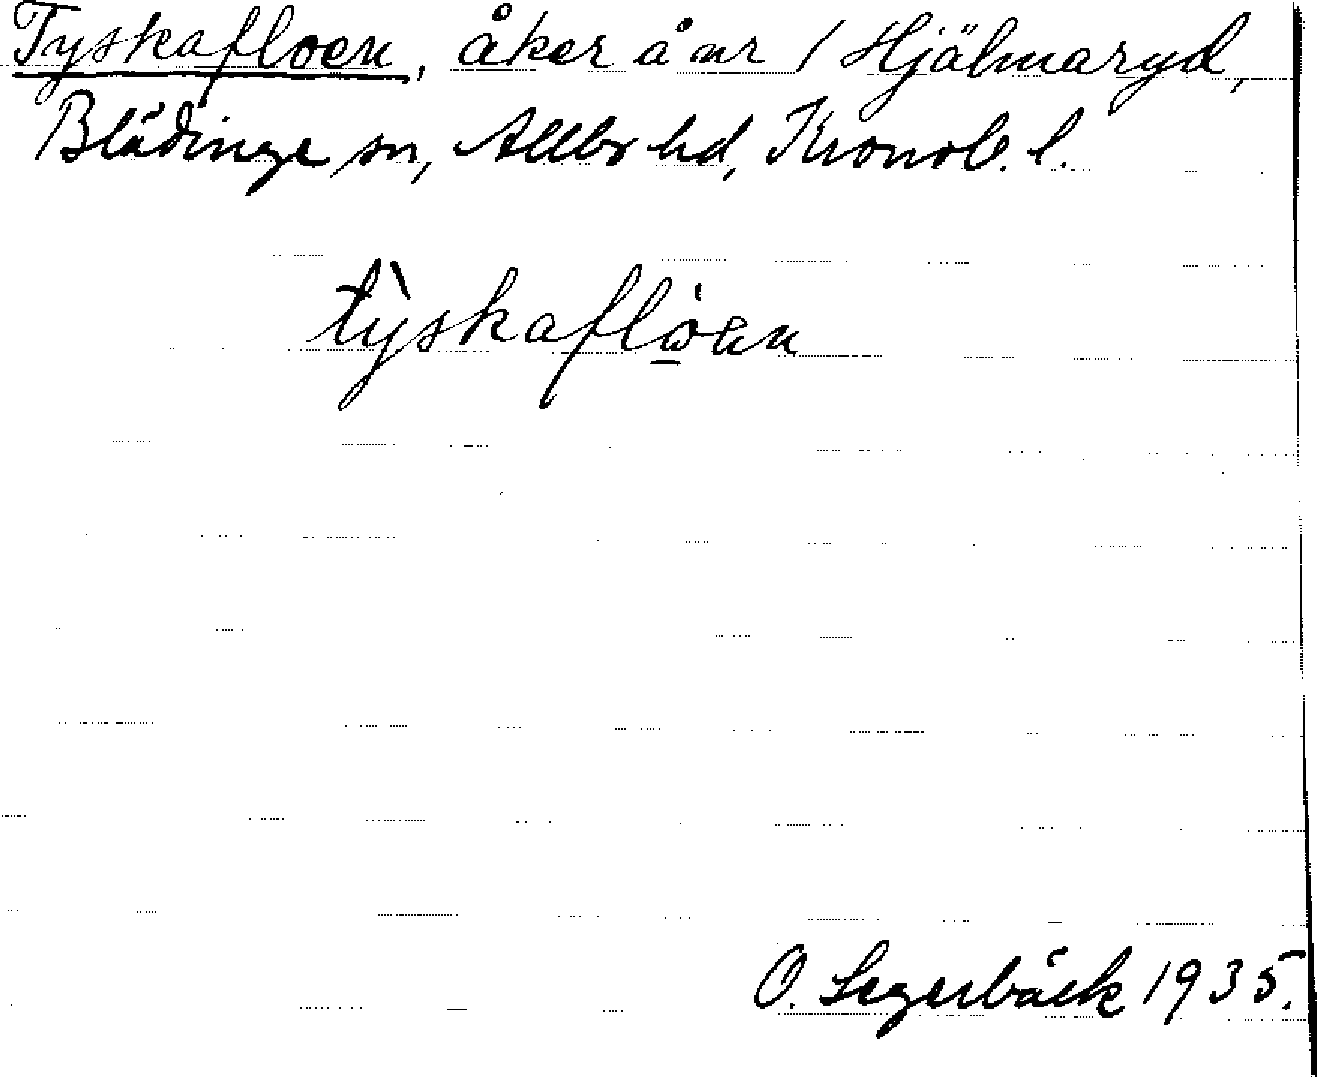 Tyskafloen, åker å nr 1 Hjälmaryd,
Blädinge sn, Allbo hd, Kronob. l.
tỳskaflo̲en
O. Segerbäck 1935.